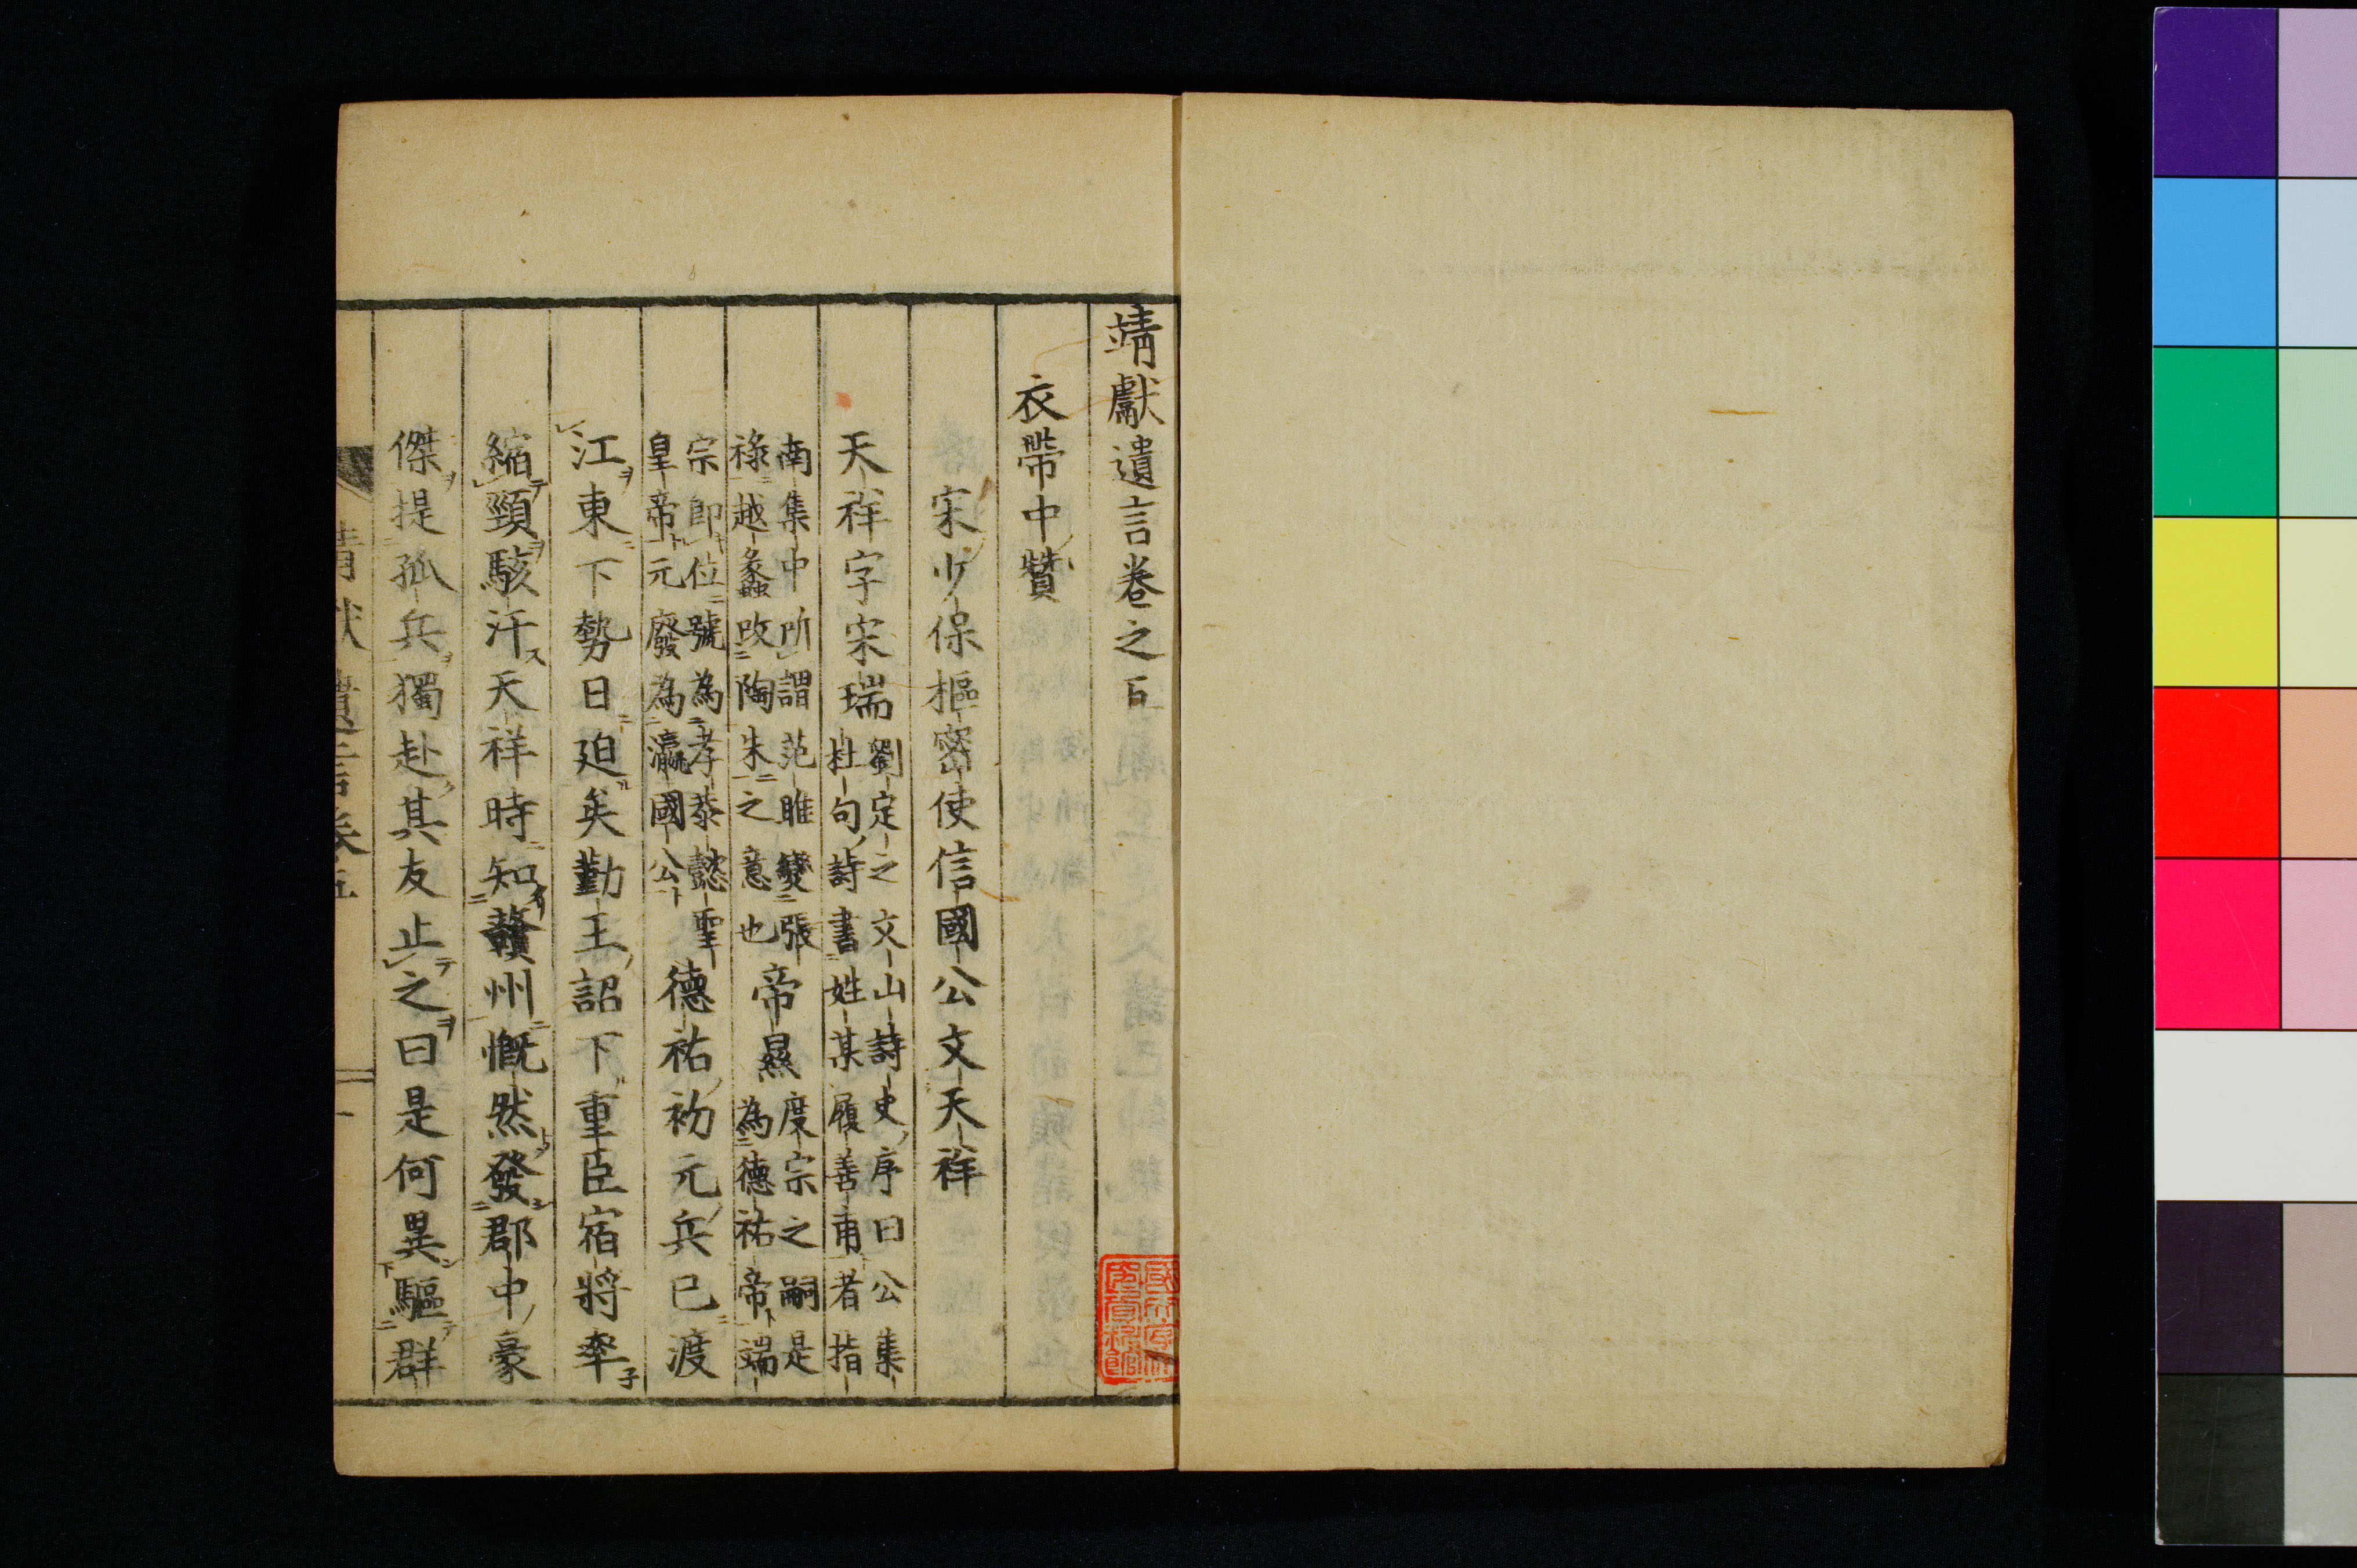 靖獻遺言卷之五
衣帶中贊
宋少保樞密使信國公文天祥
天祥字宋瑞劉定之文山詩史序曰公集杜句詩書姓某履善甫者指
南集中所謂范雎變張祿越蠡改陶朱之意也帝㬎度宗之嗣是為德祐帝端
宗即位號為孝恭懿聖皇帝元廢為瀛國公德祐初元兵已渡
江東下勢日迫矣勤王詔下重臣宿將率
縮頸駭汗天祥時知贛州慨然發郡中豪
傑提孤兵獨赴其友止之曰是何異驅群